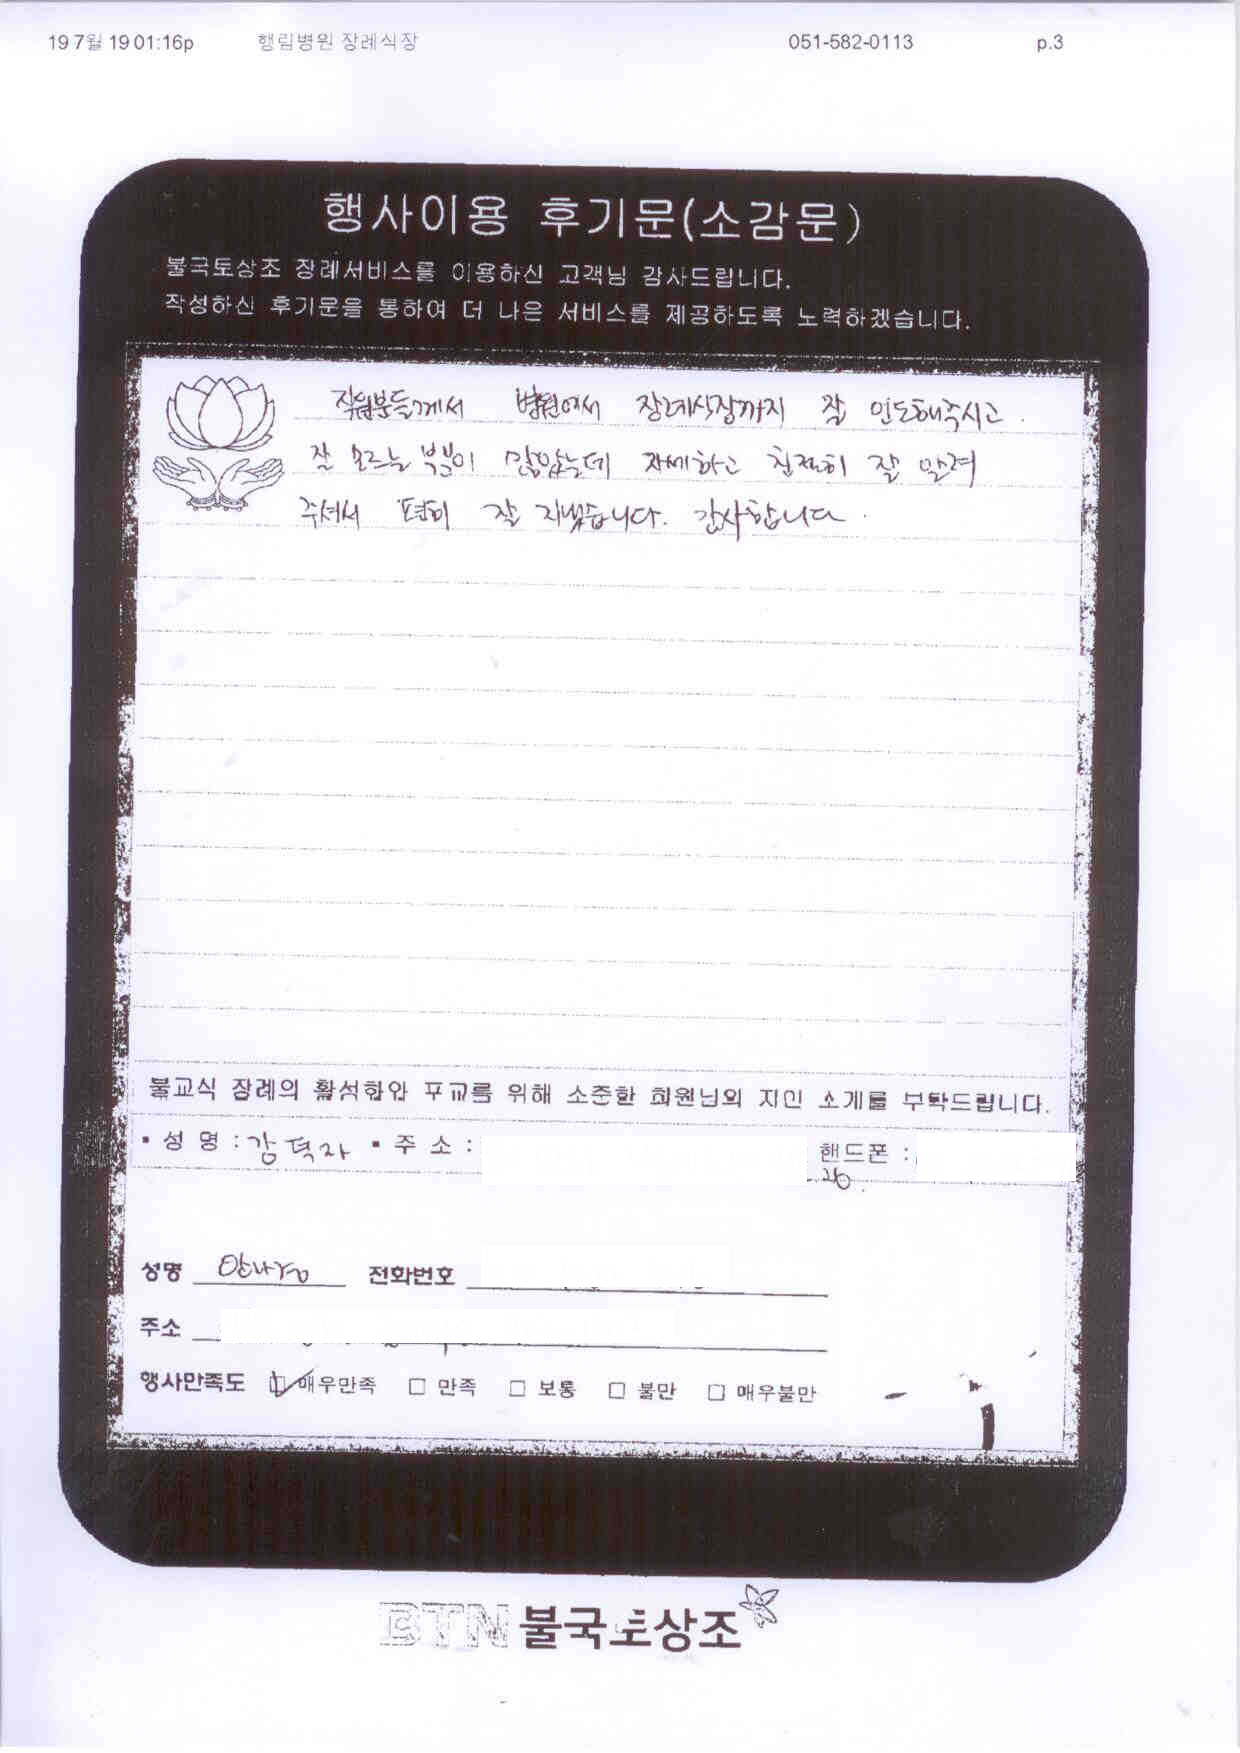 19 7월 19 01:16p 행림병원 장례식장 051-582-0113 p.3
행사이용 후기문(소감문)
불국토상조 장례서비스를 이용하신 고객님 감사드립니다.
작성하신 후기문을 통하여 더 나은 서비스를 제공하도록 노력하겠습니다.
직원분들께서 병원에서 장례식장까지 잘 인도해주시고.
잘 모르는 부분이 많았는데 자세하고 친절히 잘 알려
주셔서 편히 잘 지냈습니다. 감사합니다.
불교식 장례의 활성화와 포교를 위해 소중한 회원님의 지인 소개를 부탁드립니다.
▪ 성 명 : 감덕자 ▪ 주 소 : 핸드폰 :
성명 전화번호
주소
행사만족도 ☑ 매우만족 □ 만족 □ 보통 □ 불만 □ 매우불만
BTN 불국토상조